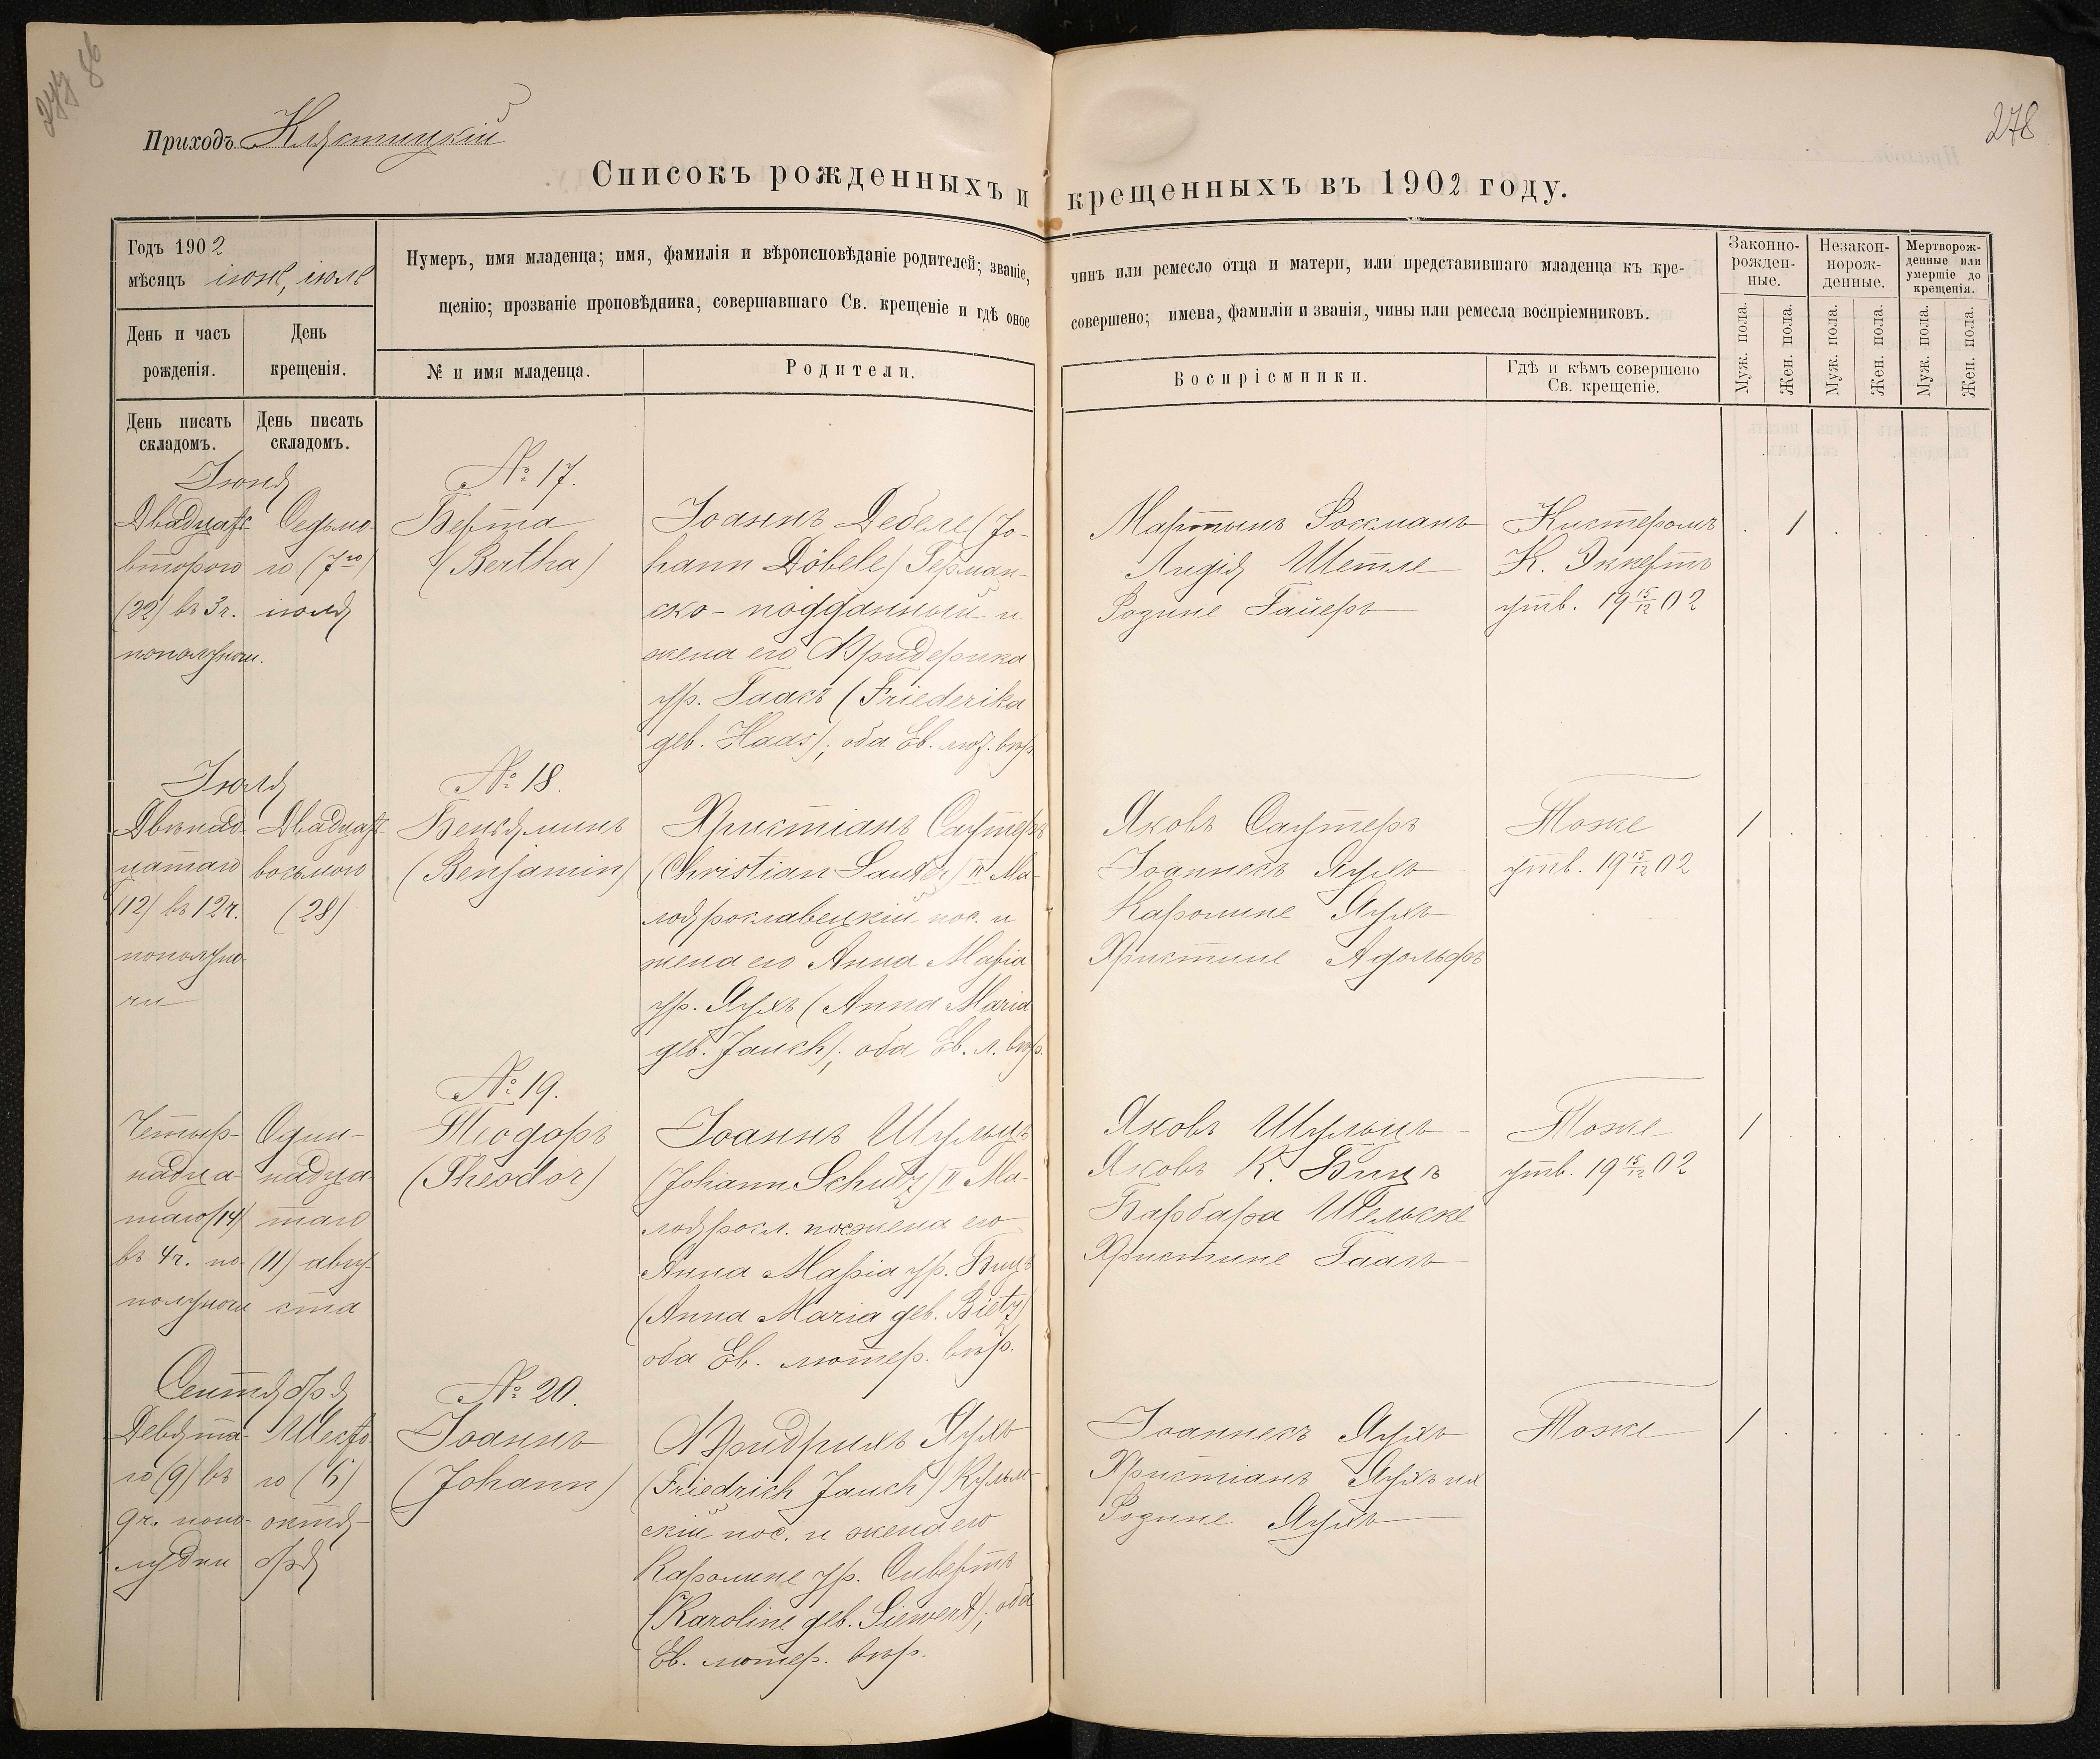 277 86
278
Приходъ Клястицкій
Списокъ рожденныхъ и крещенныхъ въ 1902 году.
Годъ 1902
мѣсяцъ іюнь, іюль
День и часъ
рожденія.
День
крещенія.
Нумеръ, имя младенца; имя, фамилія и вѣроисповѣданіе родителей; званіе, чинъ или ремесло отца и матери, или представившаго младенца къ кре-
щенію; прозваніе проповѣдника, совершавшаго Св. крещеніе и гдѣ оное совершено; имена, фамиліи и званія, чины или ремесла воспріемниковъ.
№ и имя младенца.
Родители.
Воспріемники.
Гдѣ и кѣмъ совершено
Св. крещеніе.
Законно-
рожден-
ные.
Незакон-
норож-
денные.
Мертворож-
денные или
умершіе до
крещенія.
Муж. пола.
Жен. пола.
Муж. пола.
Жен. пола.
Муж. пола.
Жен. пола.
День писать
складомъ.
День писать
складомъ.
Іюня
Двадцать
второго
(22) въ 3 ч.
пополуночи.
Седьмо-
го (7го)
іюля
№ 17.
Берта
(Bertha)
Іоаннъ Дебеле (Jo-
hann Döbele) Герман-
ско-подданный и
жена его Фридерика
ур. Гаасъ (Friederika
geb. Haas); оба Ев. лют. вѣр.
Мартынъ Россманъ
Лидія Шетле
Розине Гайеръ
Кистеромъ
К. Эккертъ
утв. 19 15/12 02
1
Іюля
Двѣнад-
цатаго
(12) въ 12 ч.
пополуно-
чи
Двадцать
восьмого
(28)
№ 18.
Беньяминъ
(Benjamin)
Христіанъ Саутеръ
(Christian Sauter) II Ма-
лоярославецкій пос. и
жена его Анна Марія
ур. Яухъ (Anna Maria
geb. Jauch); оба Ев. л. вѣр.
Яковъ Саутеръ
Іоаннесъ Яухъ
Каролине Яухъ
Христине Адольфъ
Тоже
утв. 19 15/12 02
1
Четыр-
надца-
таго (14)
въ 4 ч. по-
полуночи
Один-
надца-
таго
(11) авгу-
ста
№ 19.
Теодоръ
(Theodor)
Іоаннъ Шульцъ
(Johann Schulz) II Ма-
лояросл. пос жена его
Анна Марія ур. Бицъ
(Anna Maria geb. Bietz)
оба Ев. лютер. вѣр.
Яковъ Шульцъ
Яковъ К. Бицъ
Барбара Шельске
Христине Гаагъ
Тоже
утв. 19 15/12 02
1
Сентября
Девята-
го (9) въ
9 ч. попо-
лудни
Шесто-
го (6)
октя-
бря
№ 20.
Іоаннъ
(Johann)
Фридрихъ Яухъ
(Friedrich Jauch) Кульм-
скій пос. и жена его
Каролине ур. Сивертъ
(Karoline geb. Siewert); оба
Ев. лютер. вѣр.
Іоаннесъ Яухъ
Христіанъ Яухъ
Розине Яухъ
Тоже
1